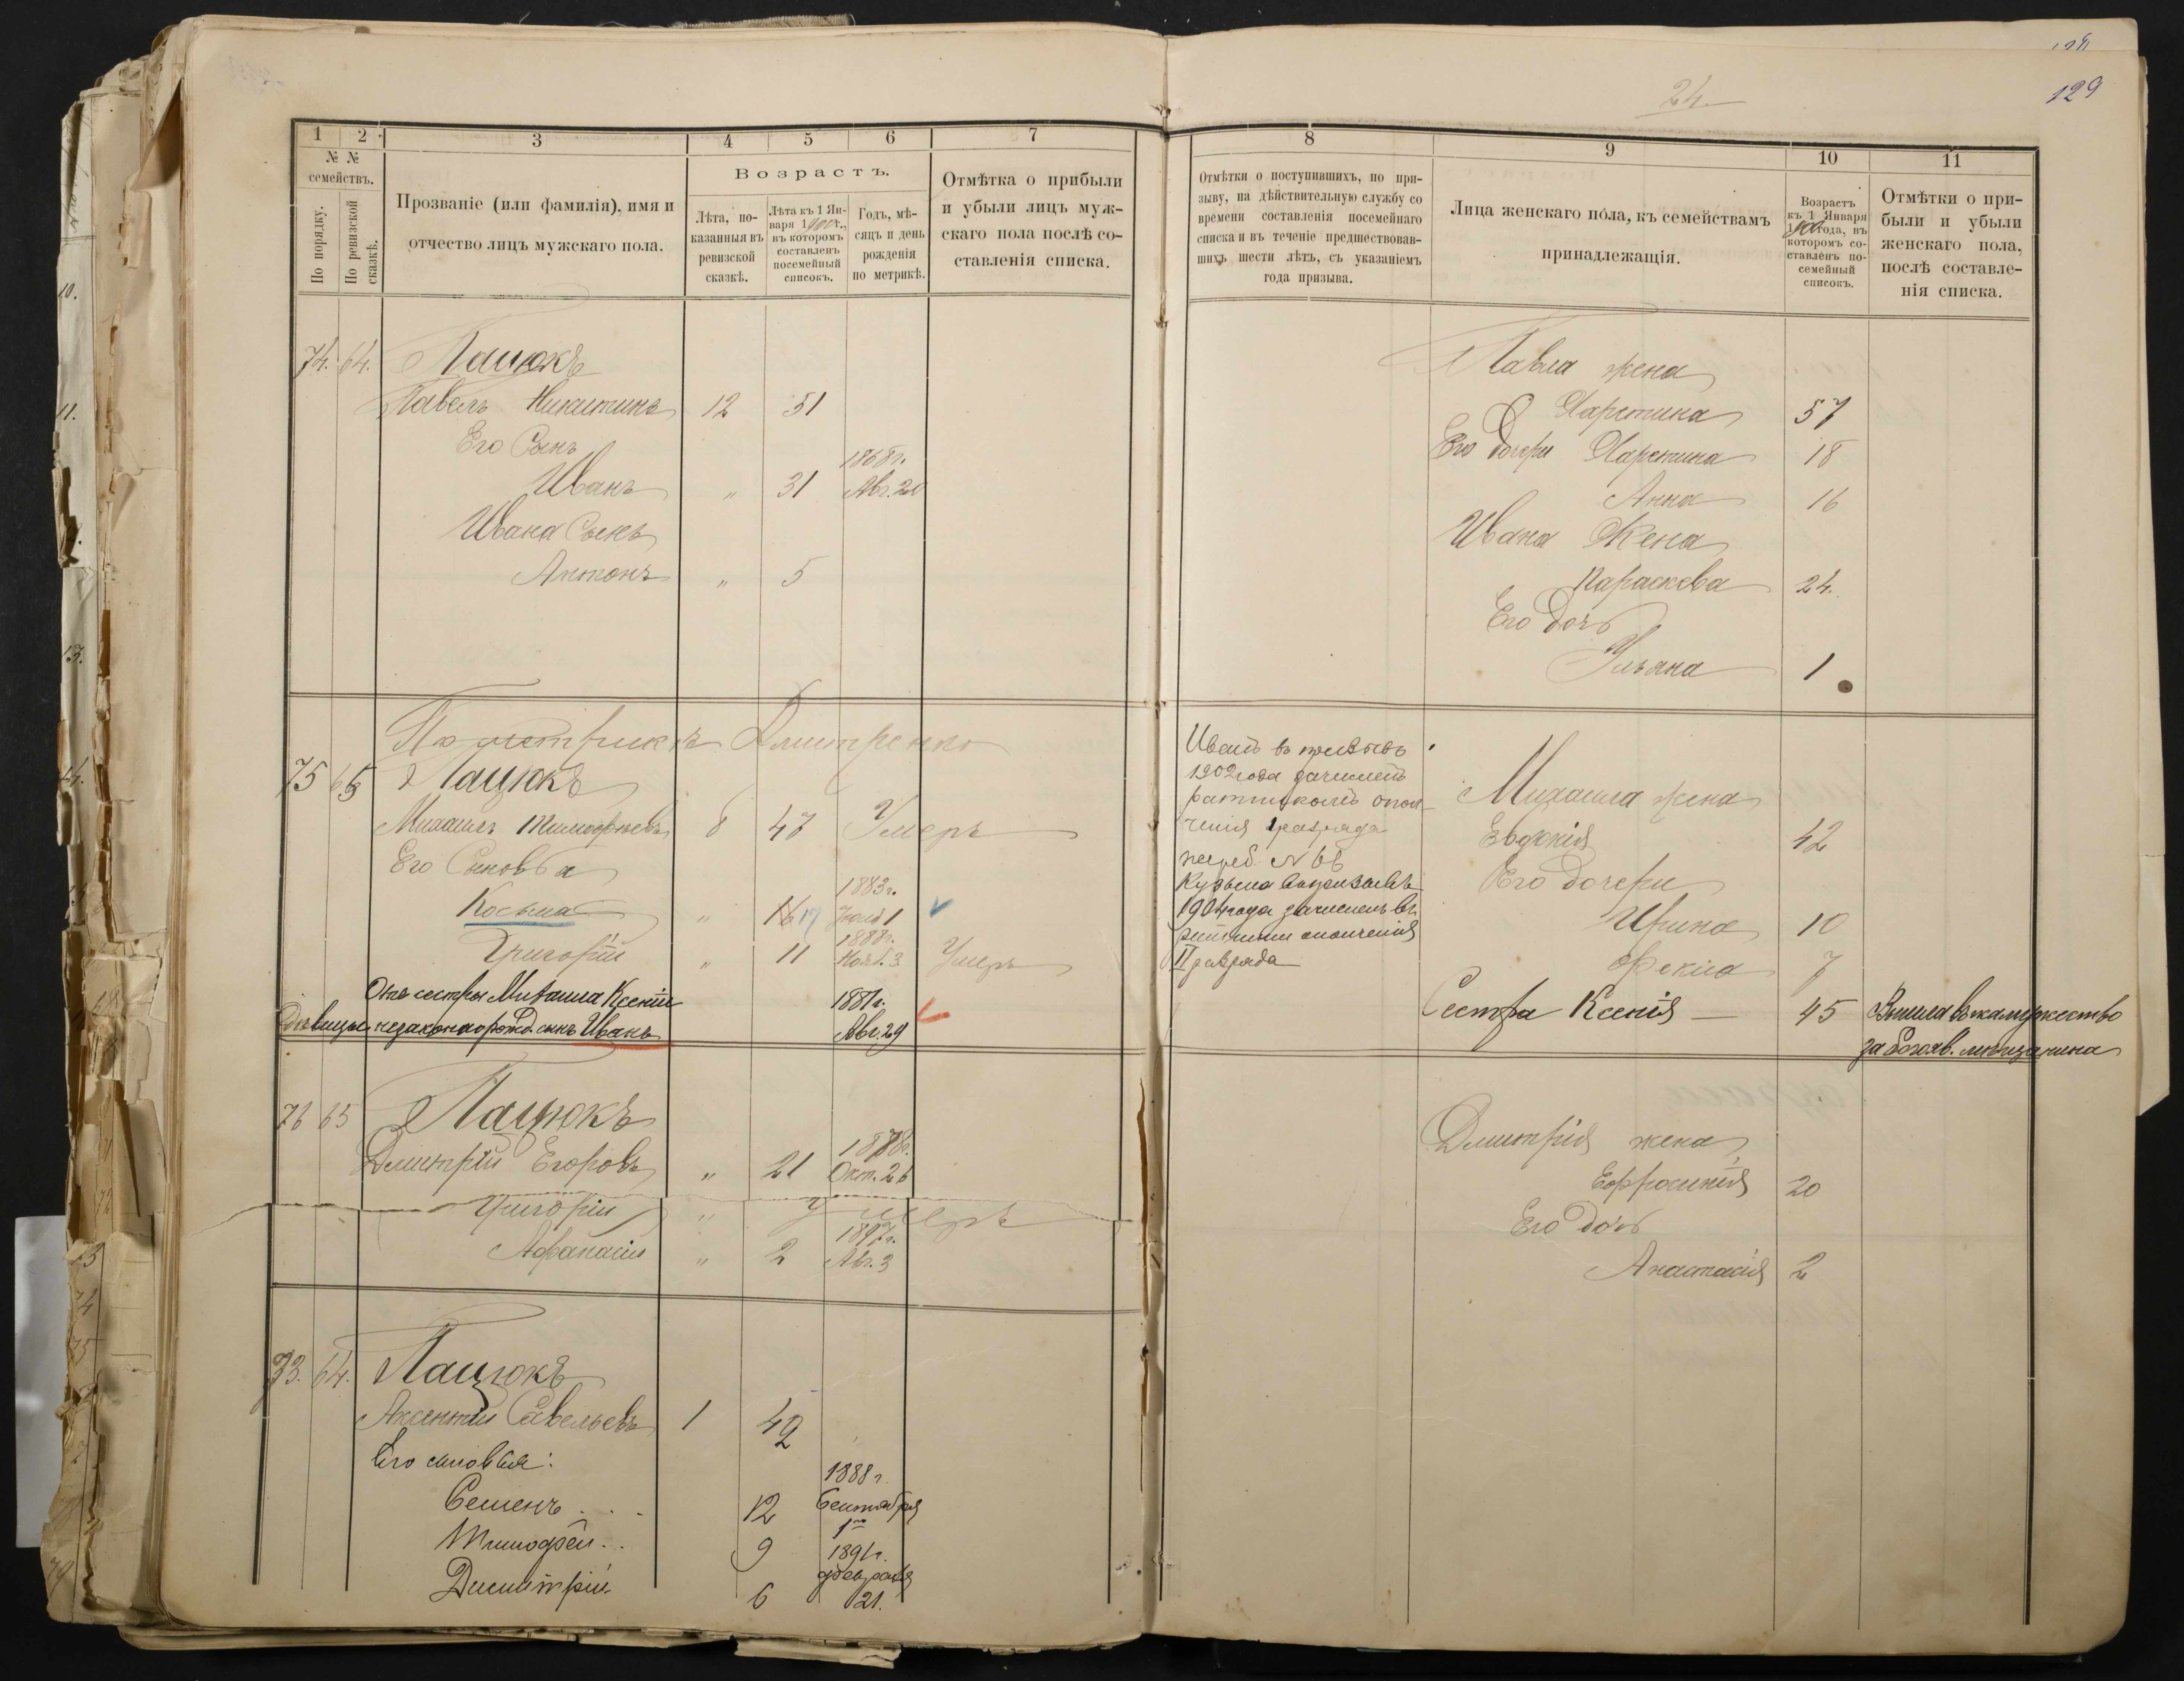 24
129
1
2
3
4
5
6
7
№ №
семействъ.
По порядку.
По ревизской
сказкѣ.
Прозваніе (или фамилія), имя и
отчество лицъ мужскаго пола.
Возрастъ.
Лѣта, по-
казанныя въ
ревизской
сказкѣ.
Лѣта къ 1 Ян-
варя 1900 г.,
въ которомъ
составленъ
посемейный
списокъ.
Годъ, мѣ-
сяцъ и день
рожденія
по метрикѣ.
Отмѣтка о прибыли
и убыли лицъ муж-
скаго пола послѣ со-
ставленія списка.
74. 64. Пацюкъ
Павелъ Никитинъ 12 51
Его Сынъ
1868 г.
Иванъ " 31 Авг. 20
Ивана Сынъ
Антонъ " 5
По метрикѣ Дмитренко
75 65 Пацюкъ
Михаилъ Тимофѣевъ 8 47 Умеръ
Его Сыновья
1883 г.
Косьма " 16 17 Іюля 1
1888 г.
Григорій " 11 Нояб. 3 Умеръ
Отъ сестры Михаила Ксеніи 1881 г.
Дѣвицы незаконорожд. сынъ Иванъ Авг. 29
76 65 Пацюкъ
1878 г.
Дмитрій Егоровъ " 21 Окт. 26
Григорій " Умеръ
1897 г.
Афанасій " 2 Авг. 3
73. 64. Пацюкъ
Аксентій Савельевъ 1 49
Его сыновья:
1888 г.
Семенъ 12 Сентября
1го
Тимофей 9 1891 г.
февраля
Дмитрій 6 21.
8
9
10
11
Отмѣтки о поступившихъ, по при-
зыву, на дѣйствительную службу со
времени составленія посемейнаго
списка и въ теченіе предшествовав-
шихъ шести лѣтъ, съ указаніемъ
года призыва.
Лица женскаго пола, къ семействамъ
принадлежащія.
Возрастъ
къ 1 Января
1900 года, въ
которомъ со-
ставленъ по-
семейный
списокъ.
Отмѣтки о при-
были и убыли
женскаго пола,
послѣ составле-
нія списка.
Павла жена
Харитина 57
Его дочери Харитина 18
Анна 16
Ивана Жена
Параскева 24.
Его дочь
Ульяна 1
Иванъ въ призывъ
1902 года зачисленъ
ратникомъ опол-
ченія разряда
жереб. № 66
Кузьма въ призывъ
1904 года зачисленъ въ
ратники ополченія
II разряда
Михаила жена
Евдокія 42
Его дочери
Ирина 10
Фекла 7
Сестра Ксенія — 45 Вышла въ замужество
за богояв. мѣщанина
Дмитрія жена
Ефросинія 20
Его дочь
Анастасія 2